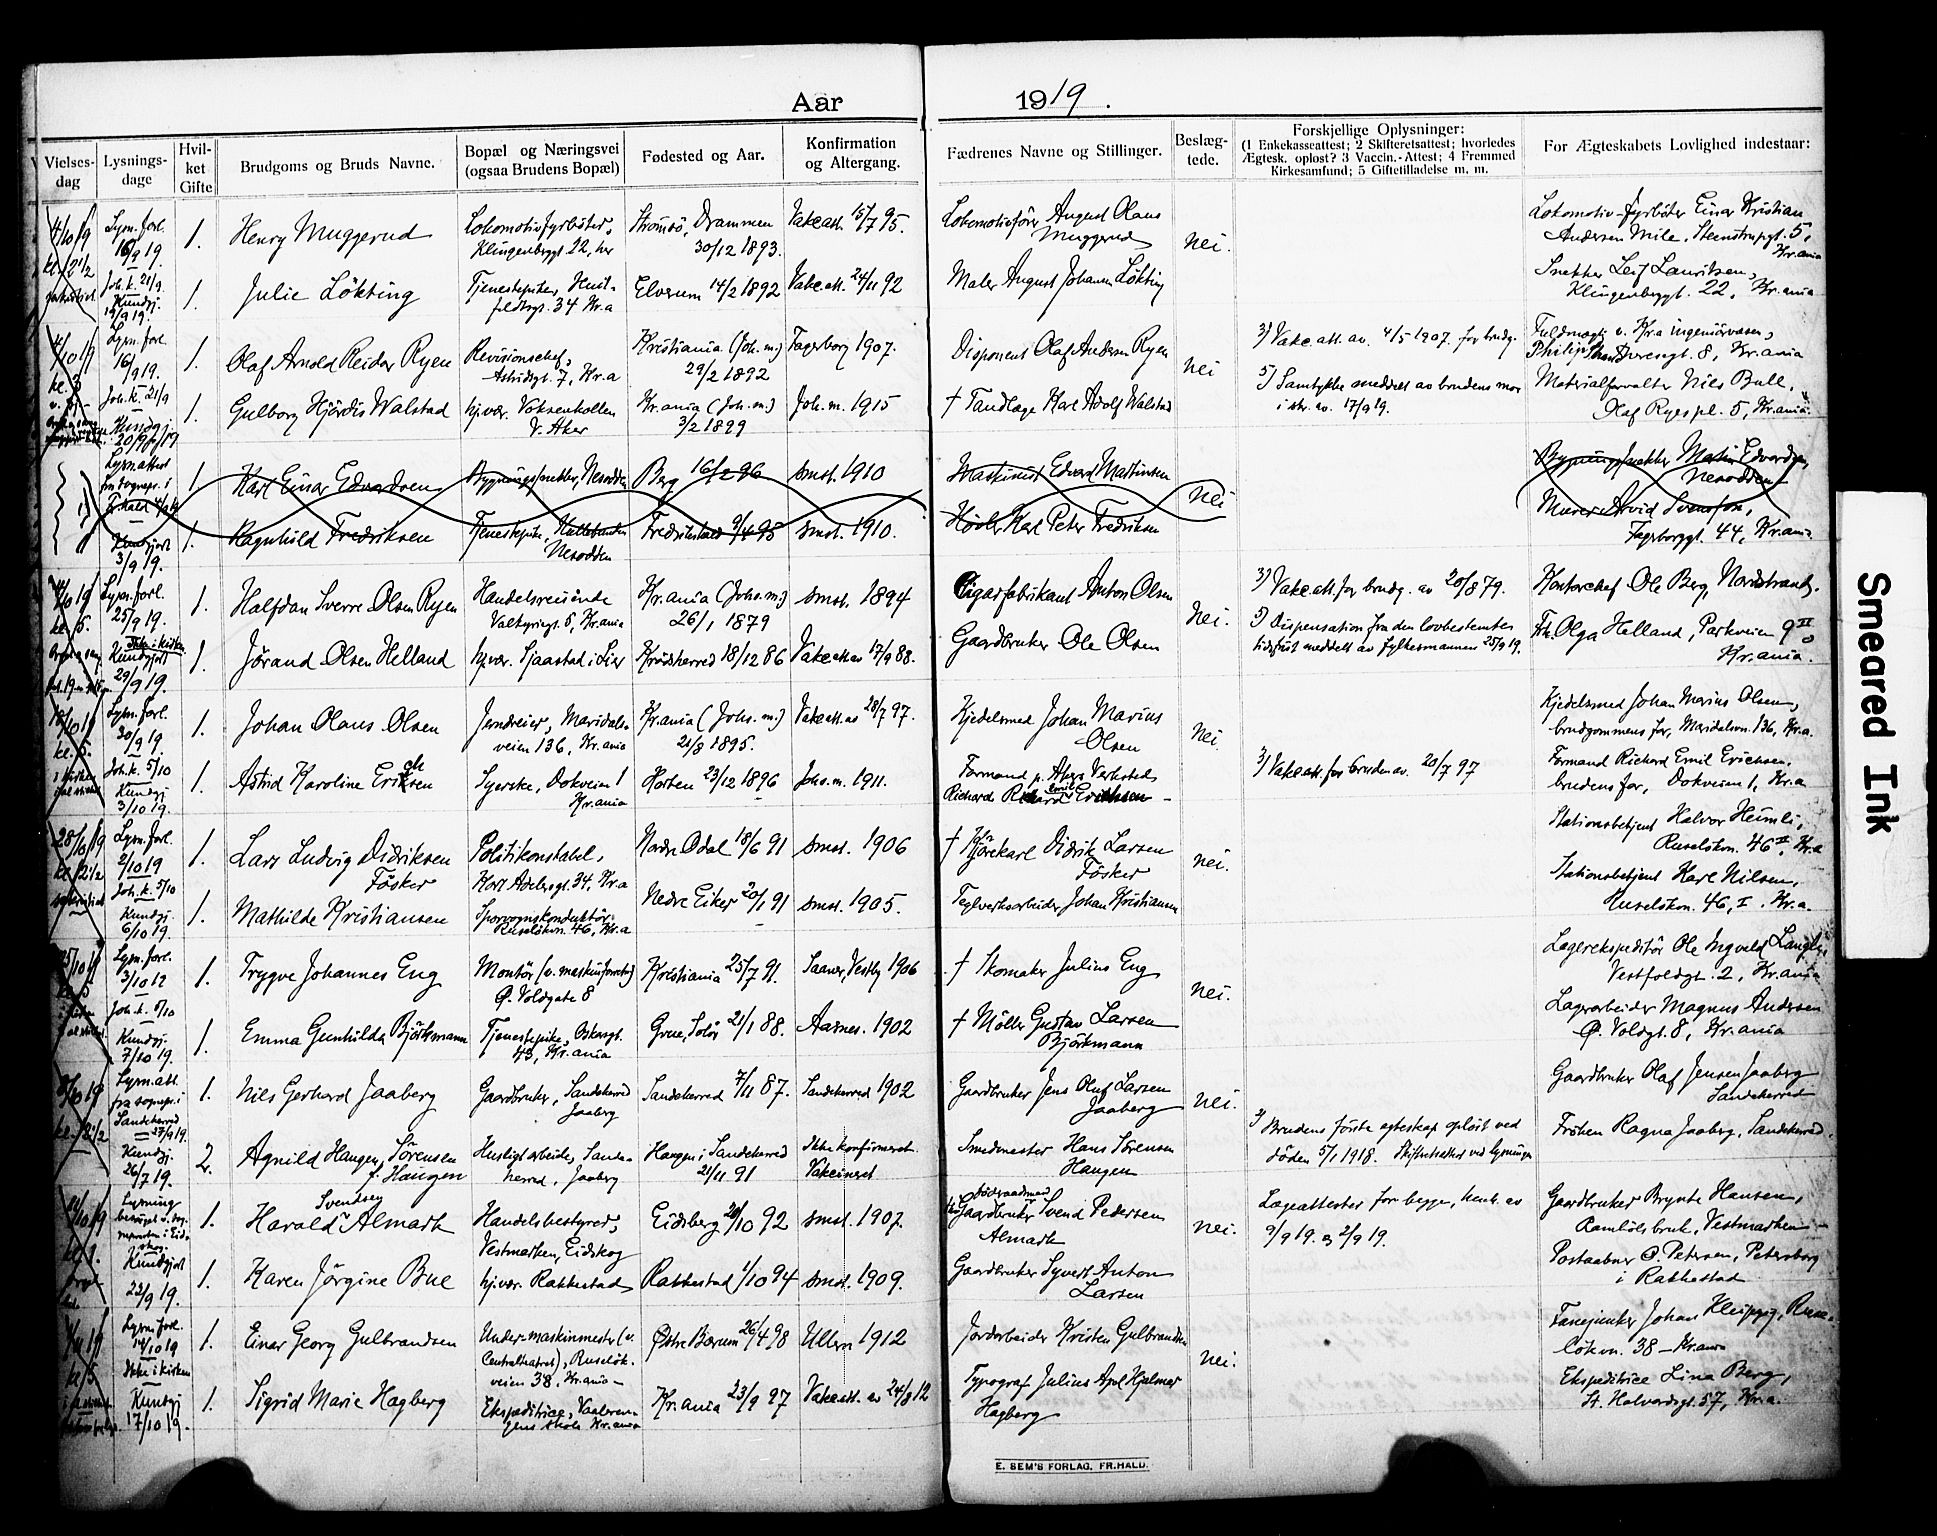 Aar 1919.
Vielses-dag
Lysnings-dage
Hvil-ket Gifte
Brudgoms og Bruds Navne.
Bopæl og Næringsvei (ogsaa Brudens Bopæl)
Fødested og Aar.
Konfirmation og Altergang.
Fædrenes Navne og Stillinger.
Beslæg-tede.
Forskjellige Oplysninger:
(1 Enkekasseattest; 2 Skifteretsattest; hvorledes
Ægtesk. opløst? 3 Vaccin.-Attest; 4 Fremmed
Kirkesamfund; 5 Giftetilladelse m. m.
For Ægteskabets Lovlighed indestaar:
4/10 19
Lysn. forl.
16/9 19.
1. Henry Muggerud
Lokomotivfyrbøter,
Klingenberggt. 22, her
Strømsø, Drammen
30/12 1893.
Vakc.att. 15/7 95.
Lokomotivfører August Olaus
Muggerud
nei.
Lokomotiv-fyrbøter Einar Kristian
Andersen Mile, Steenstrupgt. 5,
Kr.ania
Joh. k. 21/9.
Kundgj.
1. Julie Løkting
Tjenestepike, Huit-
feldtsgt. 34 Kr.a
Elverum 14/2 1892
Vakc.att. 24/11 92
Maler August Johansen Løkting
Snekker Leif Lauritsen,
Klingenberggt. 22, Kr.ania
Lysn. forl.
16/9 19.
1. Olaf Arnold Reidar Ryen
Revisionschef,
Astridsgt. 7, Kr.a
Kristiania (Joh. m.)
29/2 1892
Fagerborg 1907.
Disponent Olaf Andersen Ryen
nei
3) Vakc. att. av. 4/5 1907. for brudg.
Fuldmægtig v. Kr.a ingeniørvæsen,
Dovregt. 8, Kr.ania
Joh. k. 21/9
Kundgj.
1. Gulborg Hjørdis Walstad
hj.vær. Voksenkollen
V. Aker
Kr.ania (Joh. m.)
3/2 1899
Joh. m. 1915
† Tandlæge Karl Adolf Walstad
5) Samtykke meddelt av brudens mor
i skr. av. 17/9 19.
Materialforvalter Nils Bull,
Olaf Ryes pl. 5, Kr.ania
Lysn. attest
fra sognepr. i
Fr.hald
1. Karl Einar Edvardsen
Bygningssnekker, Nesodden
Berg 16/2 96
smst. 1910
Maskinist Edvard Martinsen
nei
Bygningssnekker Martin Edvardsen,
Nesodden
Kundgjort
3/9 19.
1. Ragnhild Fredriksen
Tjenestepike,
Nesodden
Fredrikstad 9/4 95
smst. 1910.
Høvler Karl Peter Fredriksen
Murer Arvid Svensson,
Fagerborggt. 44, Kr.ania
kl. 5.
Lysn. forl.
25/9 19.
1. Halfdan Sverre Olsen Ryen
Handelsreisende
Valkyriegt. 8, Kr.ania
Kr.ania (Johs. m.)
26/1 1879
smst. 1894
Cigarfabrikant Anton Olsen
nei.
3) Vakc.att. for brudg. av 20/8 79.
Kontorchef Ole Berg, Nordstrand.
Ikke i kirken
Kundgjort
29/9 19.
1. Jørand Olsen Helland
hj.vær. Sjaastad i Lier
Krødsherred 18/12 86
Vakc.att. av 17/9 88.
Gaardbruker Ole Olsen
5) Dispensation fra den lovbestemte
tidsfrist meddelt av fylkesmannen 25/9 19.
Frk. Olga Helland, Parkveien 9 II
Kr.ania.
18/10 19
kl. 5.
Lysn. forl.
30/9 19.
1. Johan Olaus Olsen
Jerndreier, Maridals-
veien 136, Kr.ania
Kr.ania (Johs. m.)
21/8 1895.
Vakc.att. av 28/7 97.
Kjedelsmed Johan Marius
Olsen
nei.
Kjedelsmed Johan Marius Olsen,
brudgommens far, Maridalsvn. 136, Kr.a.
Joh. k. 5/10
Kundgj.
3/10 19.
1. Astrid Karoline Erichsen
Syerske, Dokveien 1
Kr.ania
Horten 23/12 1896
Johs. m. 1911.
Formand p. Akers Verksted
Richard Emil Erichsen
3) Vakc.att. for bruden av. 20/7 97
Formand Richard Emil Erichsen,
brudens far, Dokveien 1, Kr.a
28/10 19
Lysn. forl.
2/10 19
1. Lars Ludvig Didriksen
Fosker
Politikonstabel,
Kort Adelersgt. 34, Kr.a
Nordre Odal 18/6 91
smst. 1906
† Kjørekarl Didrik Larsen
Fosker
nei.
Stationsbetjent Halvor Heimli,
Ruseløkvn. 46 II, Kr.a
Joh. k. 5/10
Kundgj.
6/10 19.
1. Mathilde Kristiansen
Sporvognskonduktør
Ruseløkvn. 46, Kr.a
Nedre Eiker 20/1 91
smst. 1905.
Teglverksarbeider Johan Kristiansen
Stationsbetjent Karl Nilsen,
Ruseløkvn. 46, I. Kr.a.
Lysn. forl.
3/10 19
1. Trygve Johannes Eng
Montør (v. maskinforretn.)
Ø. Voldgate 8
Kristiania 25/7 91.
Saaner, Vestby 1906
† Skomaker Julius Eng
nei.
Lagerekspeditør Ole Ingvald
Vestfoldgt. 2, Kr.ania
Joh. k. 5/10
Kundgj.
7/10 19.
1. Emma Gunhilda Björkmann
Tjenestepike, Oskarsgt.
43, Kr.ania
Grue, Solør 21/1 88.
Aasnes. 1902
† Møller Gustav Larsen
Björkmann
Lagerarbeider Magnus Andersen
Ø. Voldgt. 8, Kr.ania
Lysn.att.
fra sognepr. i
Sandeherred
27/9 19.
1. Nils Gerhard Jaaberg
Gaardbruker, Sandeherred
Jaaberg
Sandeherred 7/11 87.
Sandeherred 1902
Gaardbruker Jens Oluf Larsen
Jaaberg
nei.
Gaardbruker Olaf Jensen Jaaberg
Sandeherred
Kundgj.
26/7 19.
2. Agnild Haugen Sørensen
f. Haugen
Husligt arbeide, Sande-
herred, Jaaberg
Haugen i Sandeherred
21/11 91
Ikke konfirmert.
Vakcinert
Smedmester Hans Sørensen
Haugen
1) Brudens første egteskap opløst ved
døden 5/1 1918. Skifteattest ved lysningen
Frøken Ragna Jaaberg, Sandeherred.
kl. 1.
Lysning
1. Harald Svendsen Almark
Handelsbestyrer,
Vestmarken, Eidskog
Eidsberg 20/10 92
smst. 1907.
Gaardbruker Svend Pedersen
Almark
nei.
Lægeattester for begge, henh. av
9/9 19. og 2/9 19.
Gaardbruker Brynte Hansen,
Vestmarken
Kundgjort
22/9 19.
1. Karen Jørgine Bue
hj.vær. Rakkestad
Rakkestad 1/10 94
smst. 1909.
Gaardbruker Syvert Anton
Larsen
Postaabner O. Petersen, Petersborg
i Rakkestad
kl. 5
Lysn. forl.
14/10 19
1. Einar Georg Gulbrandsen
Under-maskinmester (v.
Centralteatret), Ruseløk-
veien 38, Kr.ania
Østre Bærum 26/4 98
Ullern 1912
Jordarbeider Kristen Gulbrandsen
nei.
Johan Kleipzig, Ruse-
løkvn. 38 – Kr.ania
Ikke i kirken
Kundgj
17/10 19.
1. Sigrid Marie Hagberg
Ekspeditrice, Vaaleren-
gens skole Kr.ania
Kr.ania 23/9 97
Vakc.att. av 24/8 12
Typograf Julius Axel Hjalmar
Hagberg
Ekspeditrice Lina Berg,
St. Halvardsgt. 57, Kr.a.
E. SEM'S FORLAG, FR.HALD.
Smeared Ink